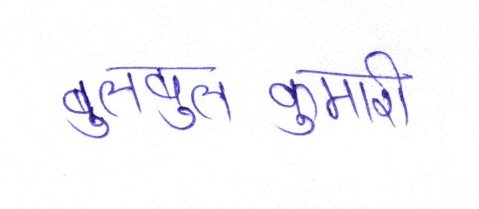 बुलबुल कुमारी